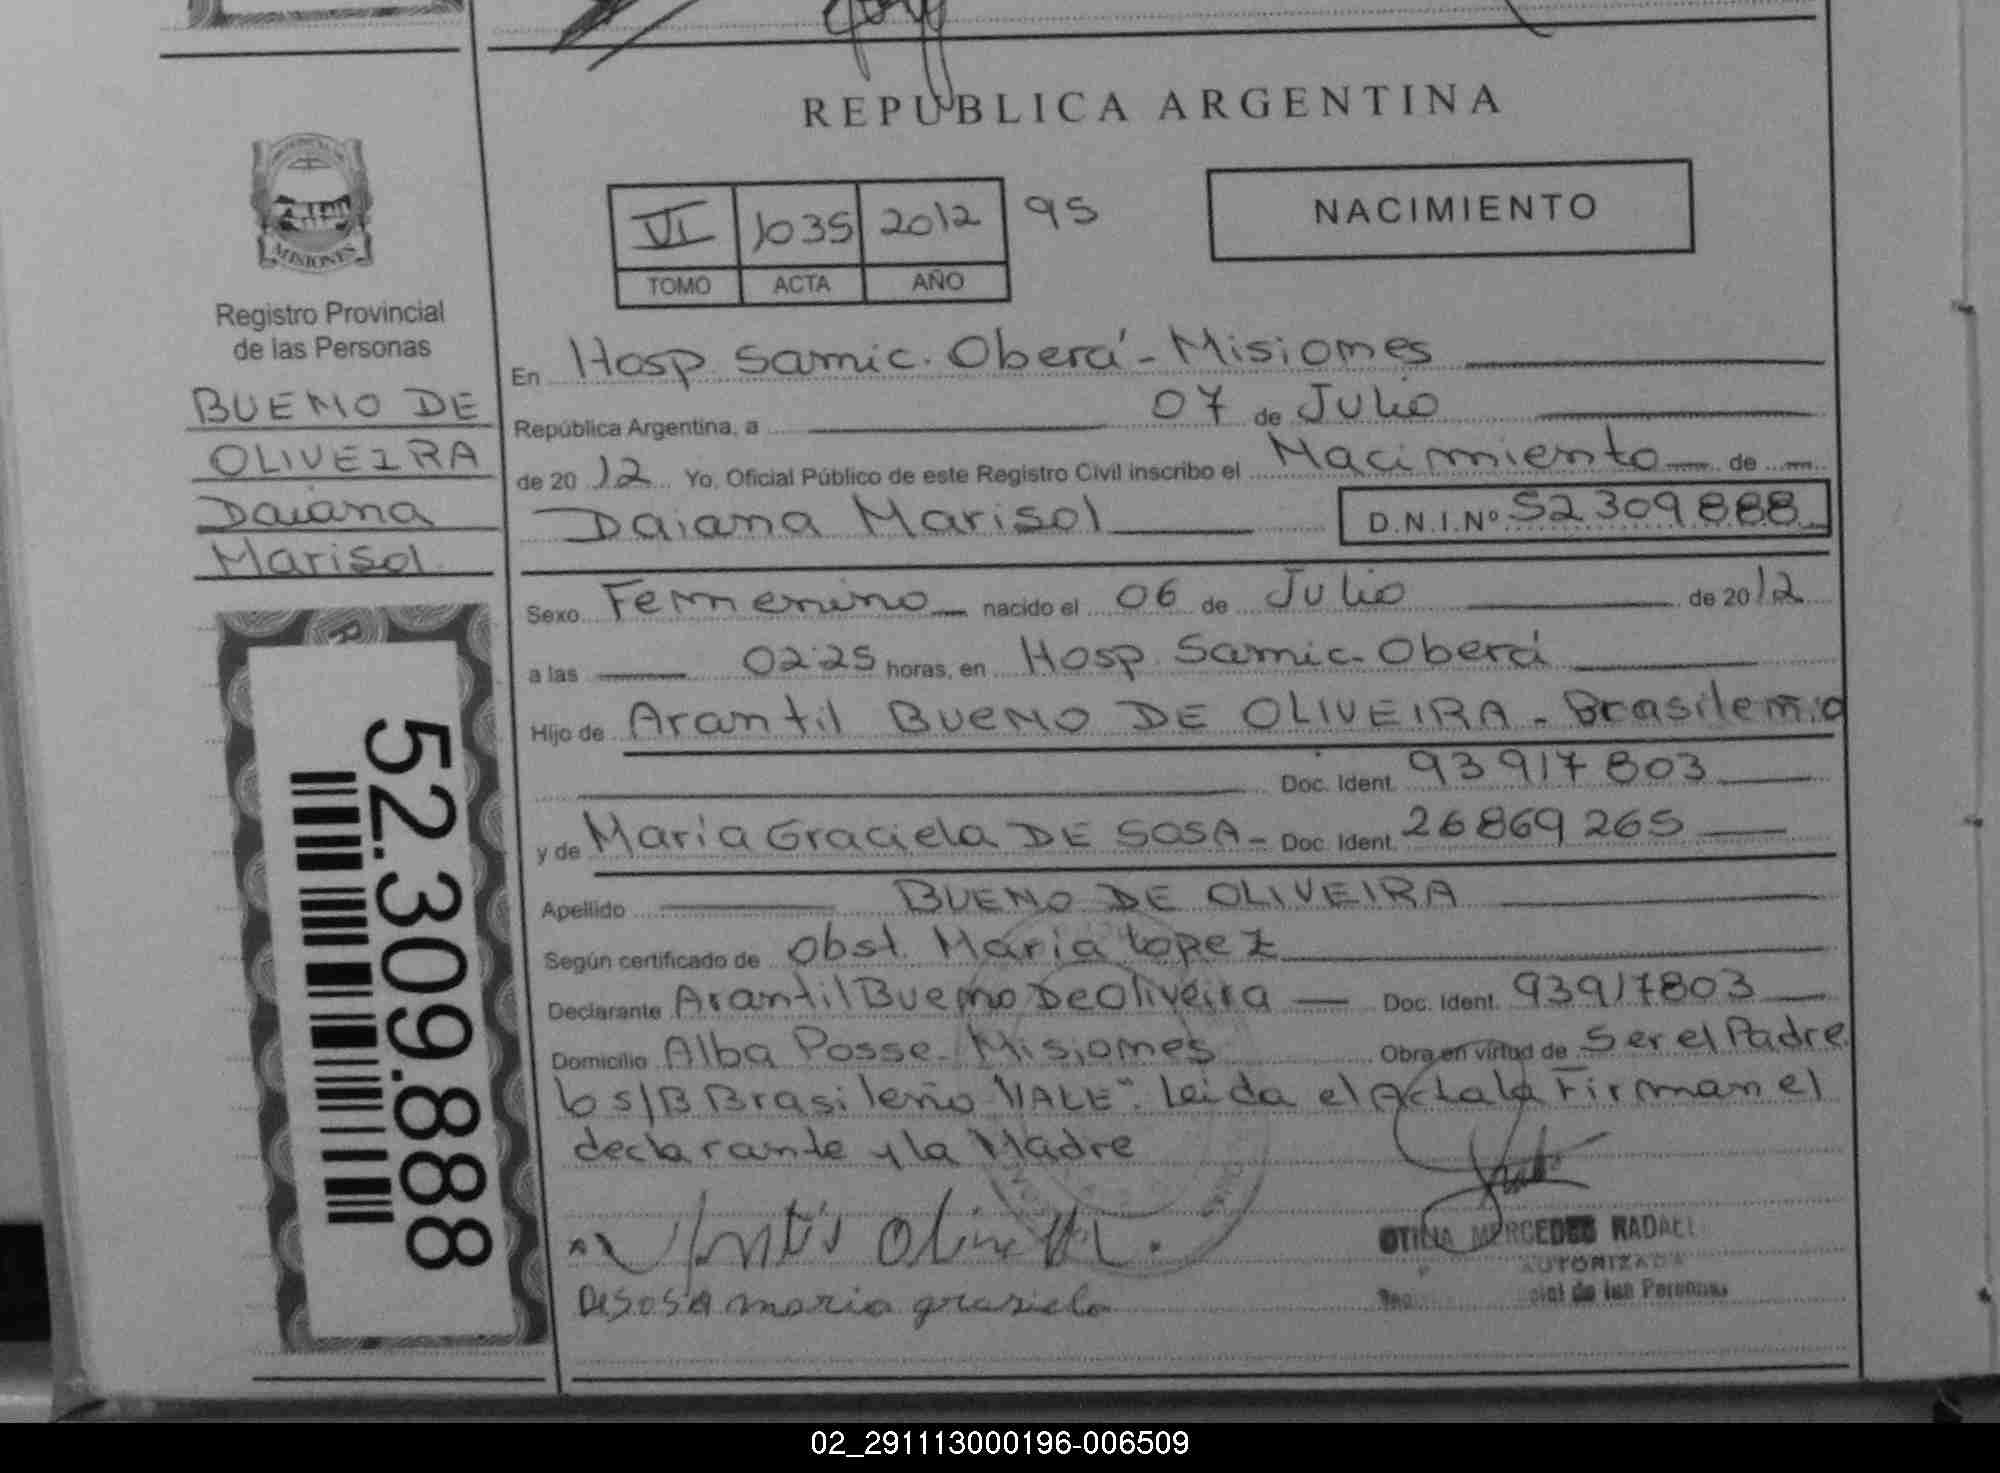 REPUBLICA ARGENTINA
NACIMIENTO
VI 1035 2012 95
TOMO ACTA AÑO
MISIONES
Registro Provincial
de las Personas
BUENO DE
OLIVEIRA
Daiana
Marisol
52.309.888
En Hosp. Samic. Oberá - Misiones
República Argentina, a 07 de Julio
de 20 12 Yo, Oficial Público de este Registro Civil inscribo el Nacimiento de
Daiana Marisol D.N.I.Nº 52309888
Sexo Femenino nacido el 06 de Julio de 20 12
a las 02:25 horas, en Hosp. Samic. Oberá
Hijo de Arantil BUENO DE OLIVEIRA - Brasilenio
Doc. Ident. 93917803
y de María Graciela DE SOSA - Doc. Ident. 26869265
Apellido BUENO DE OLIVEIRA
Según certificado de Obst. Maria Lopez
Declarante Arantil Bueno De Oliveira Doc. Ident. 93917803
Domicilio Alba Posse - Misiones Obra en virtud de Ser el Padre
lo s/B Brasileño "VALE". Leida el Acta la Firman el
declarante y la Madre
De Sosa maria grasiela
MERCEDES RADAEL
AUTORIZADA
de las Personas
02_291113000196-006509